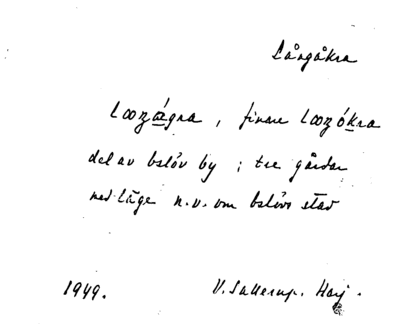 Långåkra
loozágna, finare loozókra
del av Eslöv by ; tre gårdar
med läge n.v. om Eslövs stad
1949. V. Sallerup. Harj.